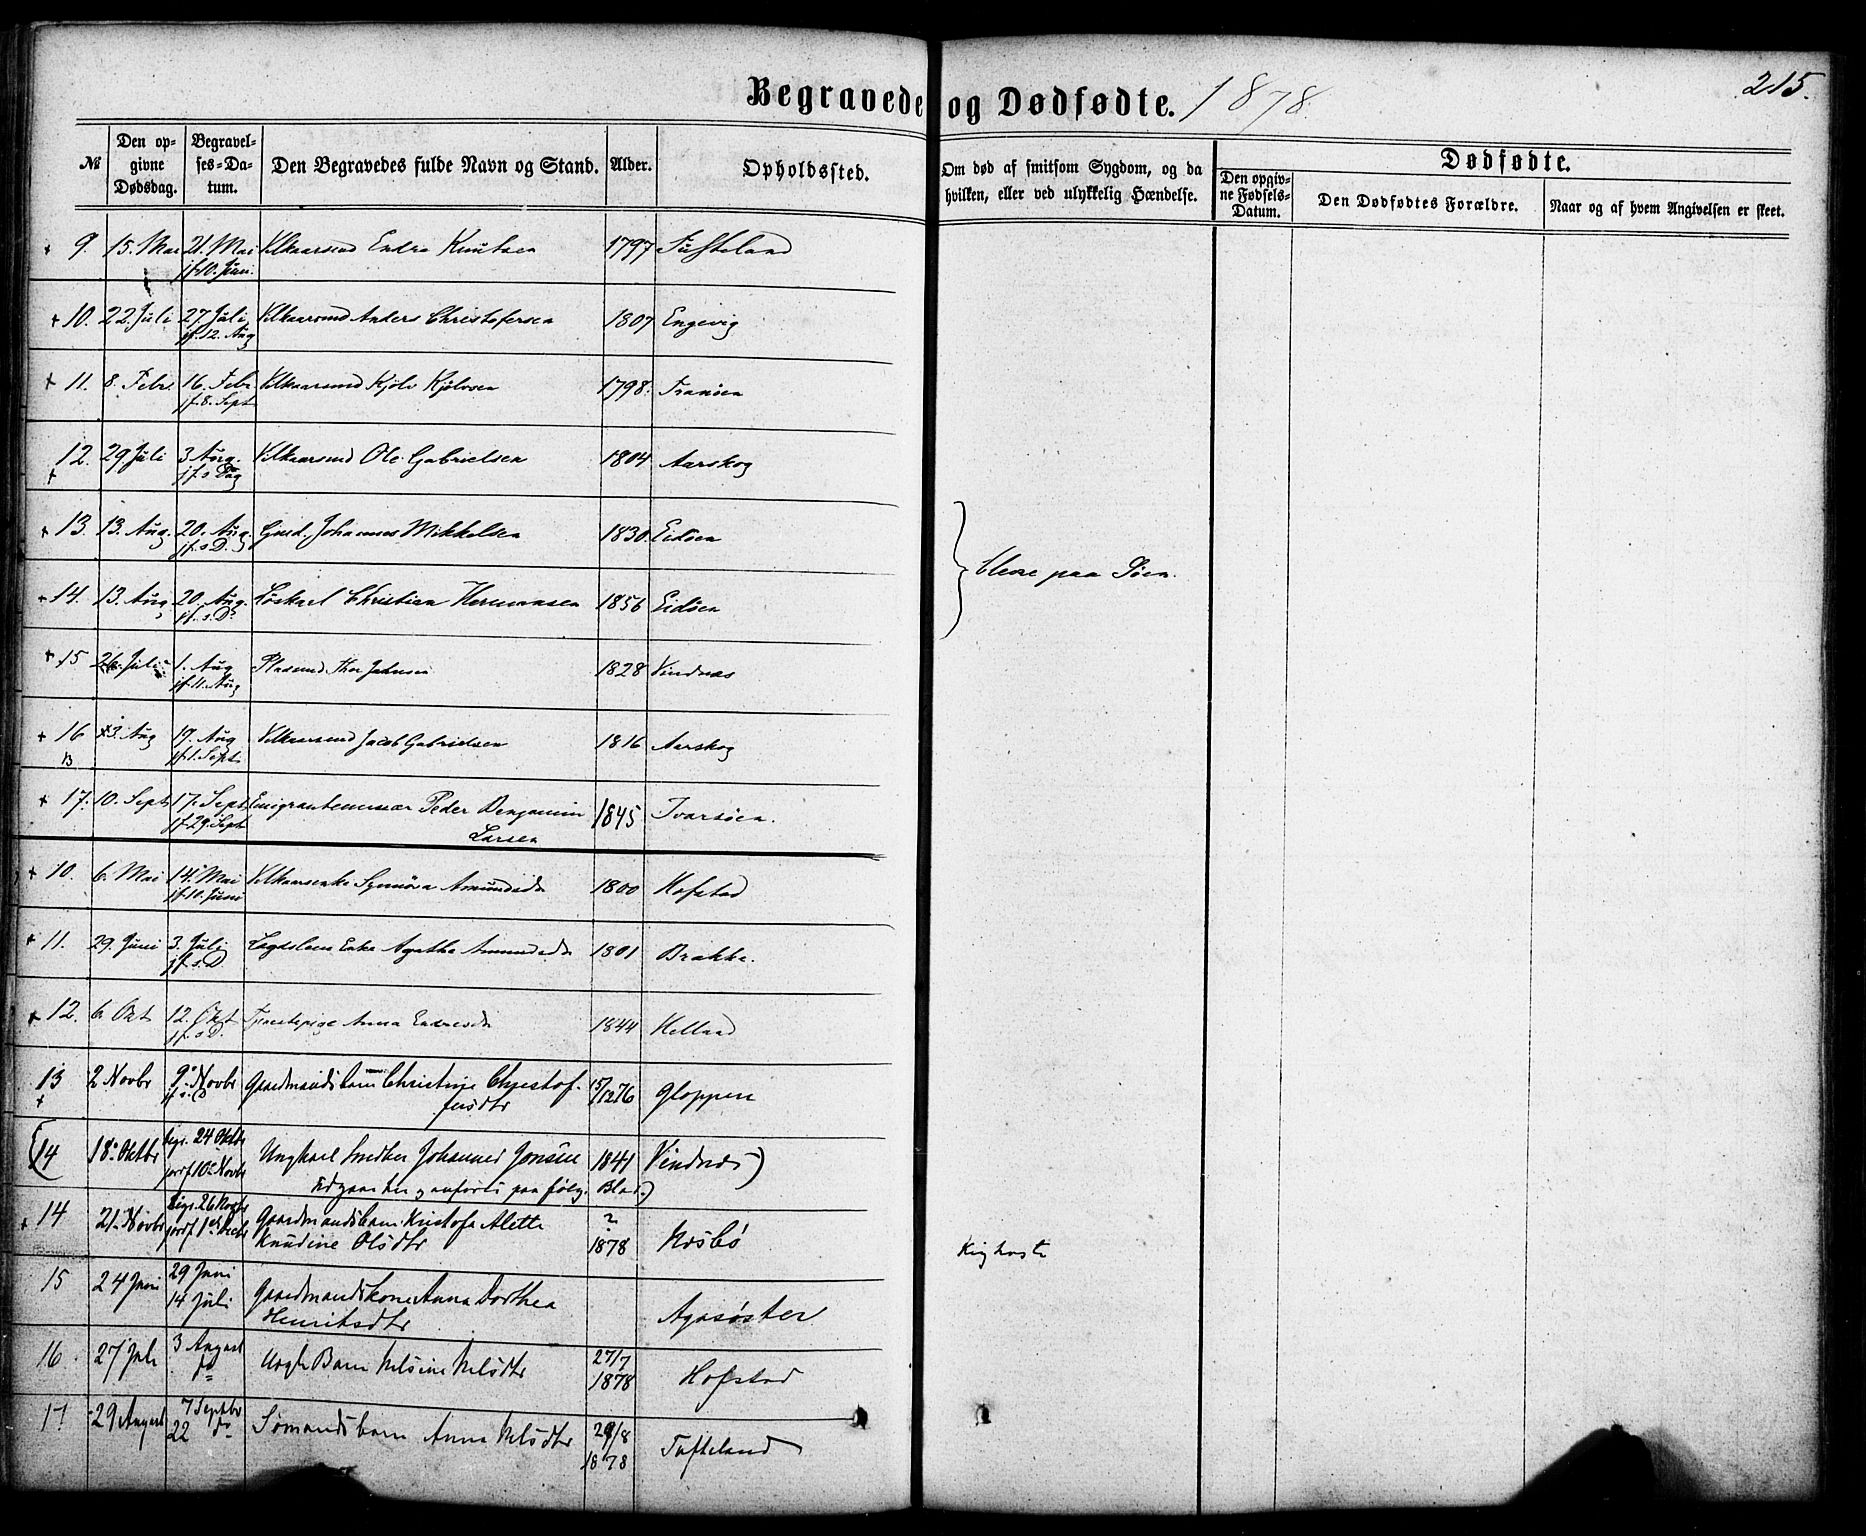 Begravede og Dødfødte. 1878.
215.
№
Den opgivne Dødsdag.
Begravelses-Datum.
Den Begravedes fulde Navn og Stand.
Alder.
Opholdssted.
Om død af smitsom Sygdom, og da hvilken, eller ved ulykkelig Hændelse.
Dødfødte.
Den opgivne Fødsels-Datum.
Den Dødfødtes Forældre.
Naar og af hvem Angivelsen er skeet.
+ 9. 15. Mai 21. Mai Vilkaarsmd Endre Knutsen 1797 Tufteland
jf. 10. Juni.
+ 10. 22. Juli 27. Juli Vilkaarsmd Anders Christofersen 1807 Engevig
jf. 12. Aug
+ 11. 8. Febr. 16. Febr Vilkaarsmd Kjølv Kjølvsen 1798. Tranøen
jf. 8. Sept
+ 12. 29 Juli 3 Aug. Vilkaarsmd Ole Gabrielsen 1804 Aarskog
jf. s Dag
+ 13. 13. Aug. 20. Aug. Gmd. Johannes Mikkelsen 1830. Eidøen
jf. s D.
Bleve paa Søen.
+ 14. 13. Aug. 20. Aug. Løskarl Christian Hermansen 1856 Eidøen
jf. s. D.
+ 15 26. Juli 1. Aug Pladsmd Thor Johnsen 1828 Vindnæs
jf. 11. Aug
+ 16 13. Aug 17. Aug Vilkaarsmd Jacob Gabrielsen 1816 Aarskog
13 jf. 1. Sept
+ 17. 10. Sept 17. Sept Emigrantemissær Peder Benjamin 1845 Ivarsøen.
jf. 29. Sept Larsen
+ 10. 6. Mai 14. Mai Vilkaarsenke Synnøva Amundsdr 1800 Hofstad
jf. 10. Juni
+ 11. 29. Juni 3. Juli Lægdslem Enke Agatha Amundsdr 1801 Brakke.
jf. s. D.
+ 12. 6. Okt 12. Okt Tjenestepige Anna Endresdr 1844 Helland
jf. s D.
13 2 Novbr 9. Novbr Gaardmandsbarn Christine Christof- 15/12 76 Gloppen
+ jf. s. D fersdtr
(14 18. Oktbr begr. 24 Oktbr Ungkarl Indber Johannes Jonsen 1841 Vindnæs)
jordf 10. Novbr Udgaar her, anførti paa følg. Blad.)
+ 14 21. Novbr Begr. 26 Novbr Gaardmandsbarn Kristofa Alette ?
jordf 1. Decbr Knudine Olsdtr 1878 Nosbø Kighoste
15 24 Juni 29 Juni Gaardmandskone Anna Dorthea
14 Juli Henriksdtr Agasøster
16 27 Juli 3 August Uægte Barn Nilsine Nilsdtr 27/7
do 1878 Hofstad
17 29 August 7 Septbr Sømandsbarn Anna Nilsdtr 29/8
22 do 1878 Tufteland